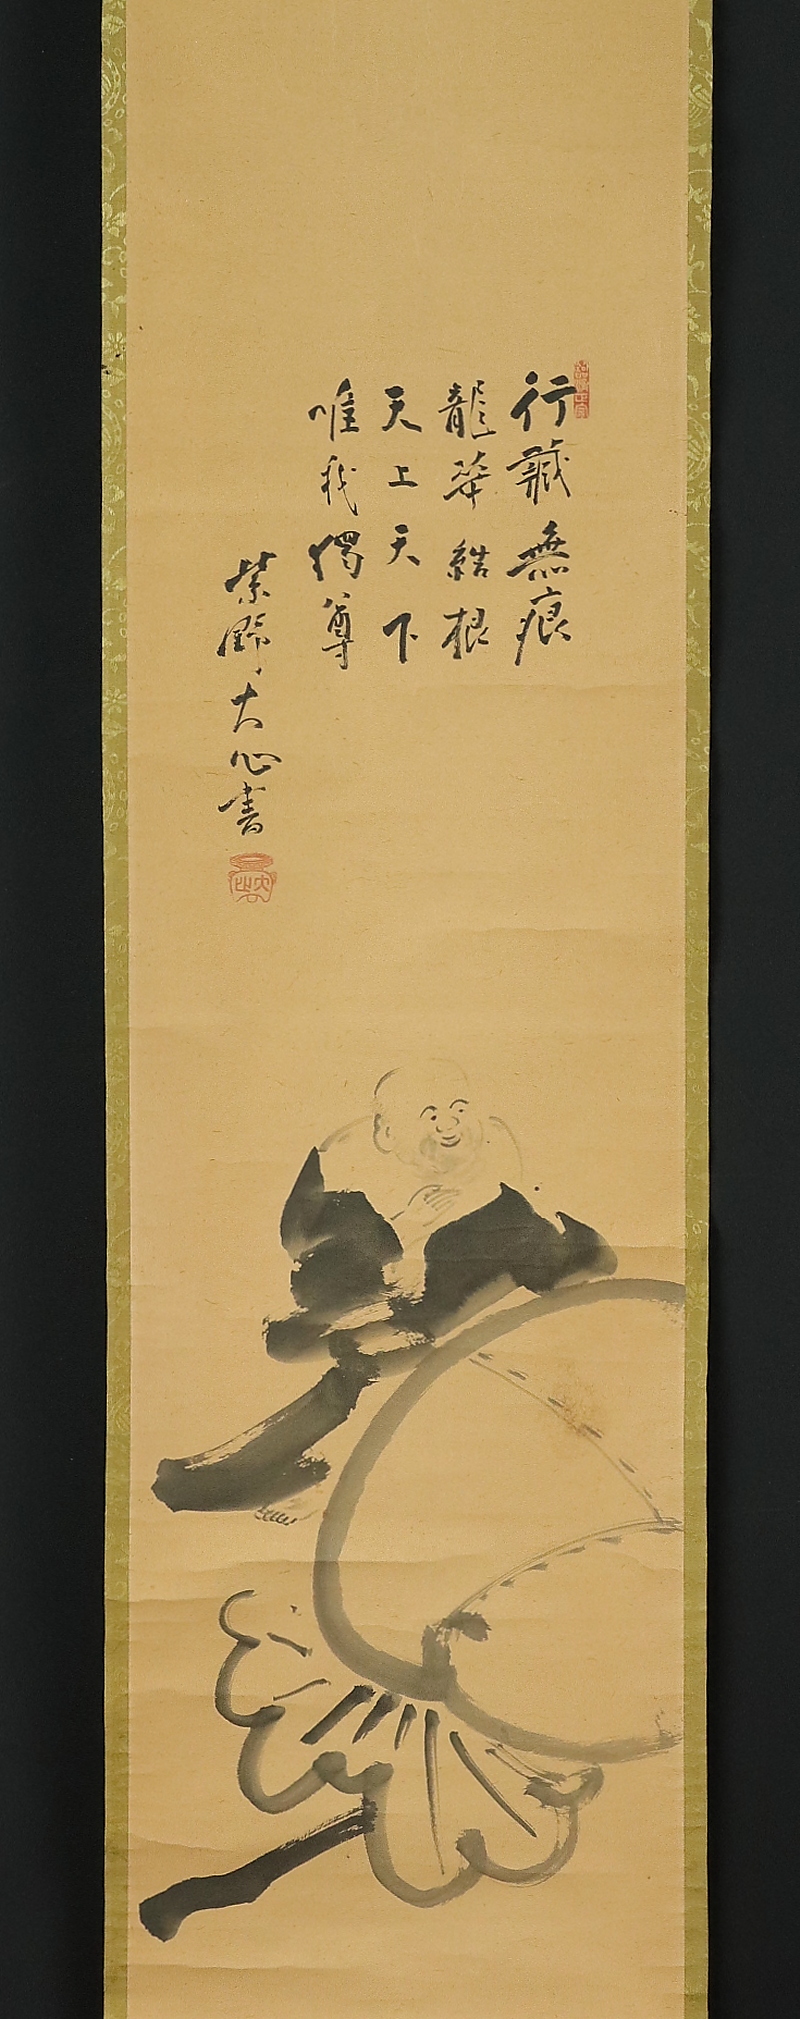 行藏無痕
龍華結根
天上天下
唯我獨尊
紫野大心書